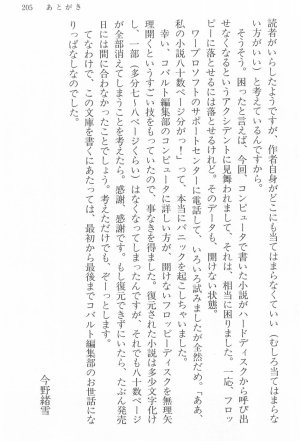 205　あとがき
読者がいらしたようですが、作者自身がどこにも当てはまらなくていい（むしろ当てはまらな
い方がいい）と考えているんですから。
そうそう。困ったと言えば、今回、コンピュータで書いた小説がハードディスクから呼び出
せなくなるというアクシデントに見舞われまして、それは、相当に困りました。一応、フロッ
ピーに落とせるには落とせるけれど、そのデータも、開けない状態。
ワープロソフトのサポートセンターに電話して、いろいろ試みましたが全然だめ。「ああ、
私の小説八十数ページ分がっ！」って、本当にパニックを起こしちゃいました。
幸い、コバルト編集部のコンピュータに詳しい方が、開けないフロッピーディスクを無理矢
理開くというすごい技をもっていたので、事なきを得ました。復元された小説は多少文字化け
し、一部（多分七〜八ページくらい）はなくなってしまったんですが、それでも八十数ページ
が全部消えてしまうことを考えたら。感謝、感謝です。もし復元できずにいたら、たぶん発売
日には間に合わなかったことでしょう。考えただけでも、ぞーっとします。
てなわけで、この文庫を書くにあたっては、最初から最後までコバルト編集部のお世話にな
りっぱなしなのでした。
今野緒雪